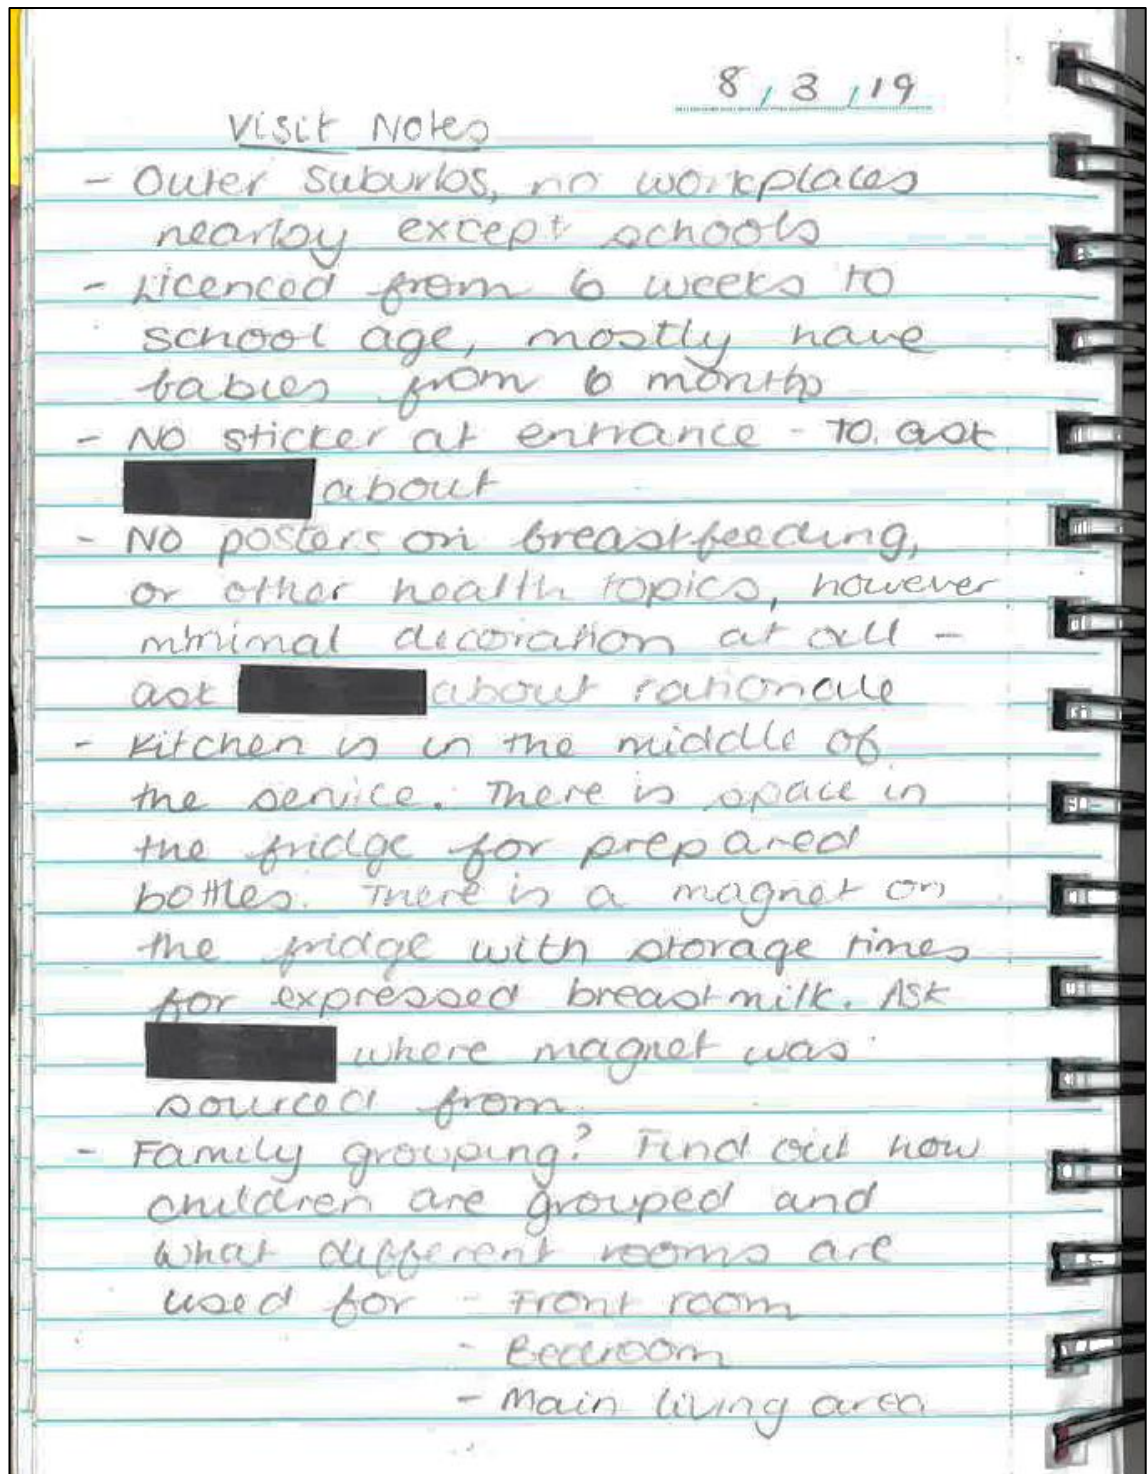 8/3/19
Visit Notes
- Outer suburbs, no workplaces
nearby except schools
- Licenced from 6 weeks to
school age, mostly have
babies from 6 months
- No sticker at entrance - to ask
about
- No posters on breastfeeding,
or other health topics, however
minimal decoration at all -
ask about rationale
- Kitchen is in the middle of
the service. There is space in
the fridge for prepared
bottles. There is a magnet on
the fridge with storage times
for expressed breastmilk. Ask
where magnet was
sourced from.
- Family grouping? Find out how
children are grouped and
what different rooms are
used for - Front room
- Bedroom
- Main living area